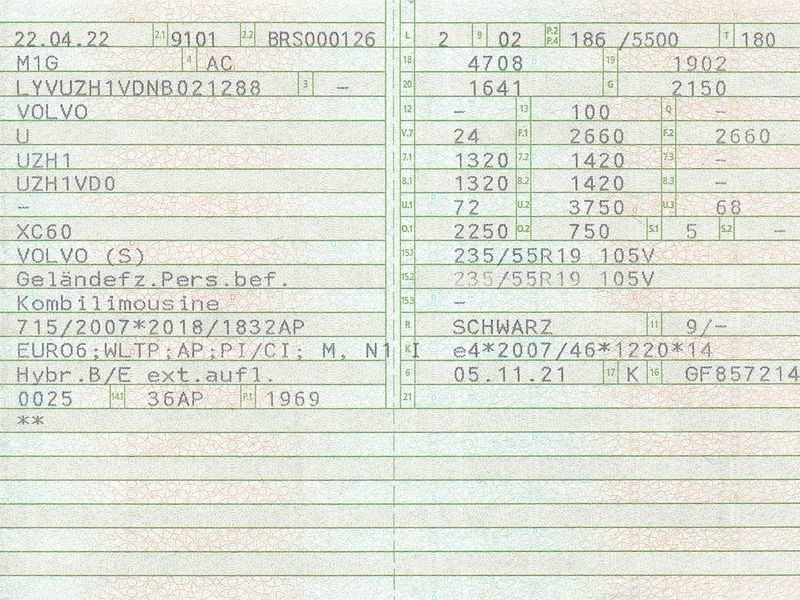 22.04.22 2.1 9101 2.2 BRS000126 L 2 9 02 P.2 P.4 186 /5500 T 180
M1G 4 AC 18 4708 19 1902
LYVUZH1VDNB021288 3 – 20 1641 G 2150
VOLVO 12 – 13 100 Q –
U V.7 24 F.1 2660 F.2 2660
UZH1 7.1 1320 7.2 1420 7.3 –
UZH1VD0 8.1 1320 8.2 1420 8.3 –
– U.1 72 U.2 3750 U.3 68
XC60 O.1 2250 O.2 750 S.1 5 S.2 –
VOLVO (S) 15.1 235/55R19 105V
Geländefz.Pers.bef. 15.2 235/55R19 105V
Kombilimousine 15.3 –
715/2007*2018/1832AP R SCHWARZ 11 9/–
EURO6;WLTP;AP;PI/CI; M, N1 I K e4*2007/46*1220*14
Hybr.B/E ext.aufl. 6 05.11.21 17 K 16 GF857214
0025 14.1 36AP P.1 1969 21
**